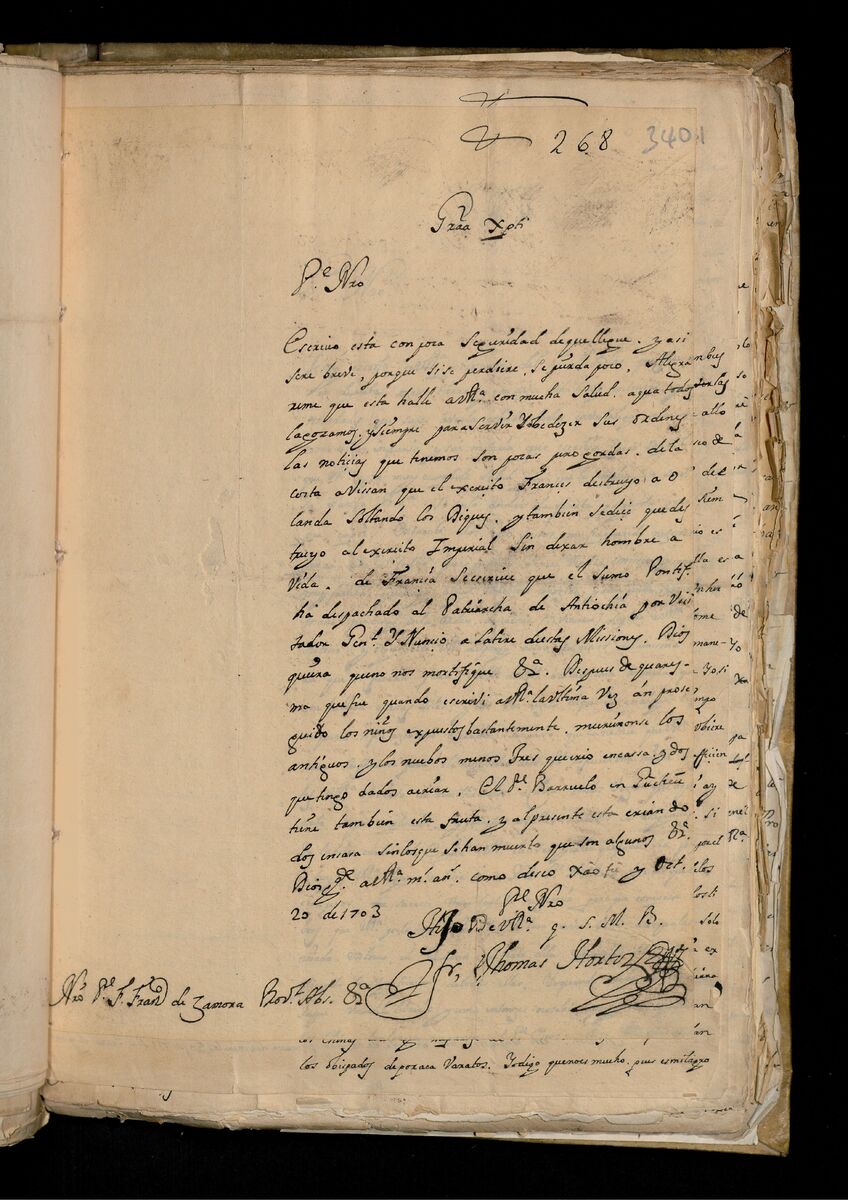 268 3401
Graa Xpti
Pe Nro
Escrivo esta con poca seguridad de que llegue. y asi
sere breve, porque si se perdiere, se pierda poco. Alegra
reme que esta halle a VRa. con mucha salud. aqua todos
la gozamos. y siempre para servir y obedezer sus ordenes
las noticias que tenemos son pocas pero gordas. de la
costa avissan que el exercito Frances destruyo a O
landa soltando los Diques. y tambien se dice que des
truyo al exercito Imperial sin dexar hombre a
Vida. de Francia se escrive que el sumo Pontif.
ha despachado al Patriarcha de Antiochia por Visi
tador Genl. y Nuncio a latere de estas Missiones. Dios
quiera que no nos mortifique &a. Despues de quares-
ma que fue quando escrivi a VRa. la ultima vez an prose
guido los niños expuestos bastantemente, murieronse los
antiguos. y los nuebos menos tres que crio en cassa. y dos
que tengo dados a criar. El Pe. Barruelo en
tiene tambien esta fruta. y al presente esta criando
dos en casa sin los que se han muerto que son algunos &a.
Dios gde a VRa. ms. as. como deseo y Oct.
20 de 1703
Pe Nro
Hijo de VRa. q. S. M. B.
fr. Thomas Hortiz
Nro Pe. F. Frando de Zamora Provl. Abs. &a
los obispados de poraca Varatos. Yo digo que no es mucho, pues es milagro